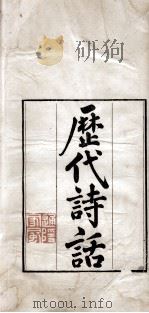 研狗
歷代詩話
mtoou.info
mtoou.info